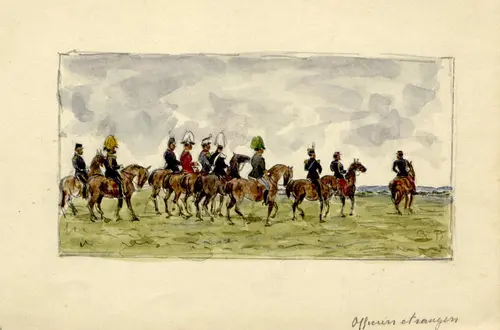 Officiers etrangers